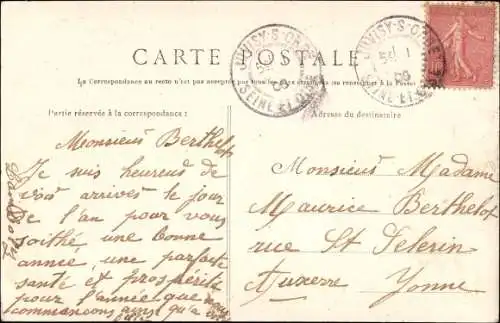 CARTE POSTALE
La Correspondance au recto n'est pas acceptée par tous les pays
se renseigner à la Poste
JUVISY-S-ORGE
SEINE-ET-OISE
JUVISY-S-ORGE
SEINE-ET-OISE
Partie réservée à la correspondance :
Monsieur Berthelot
Je suis heureux de
vois arrives le jour
de l'an pour vous
soithé, une bonne
annee, une parfaite
santé et prospérité
pour l'année que nous
commancons ainsi qu'a
Adresse du destinataire
Monsieur Madame
Maurice Berthelot
rue St Pelerin
Auxerre Yonne